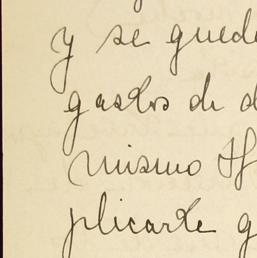 y se qued
gastos de d
mismo H
plicarte q